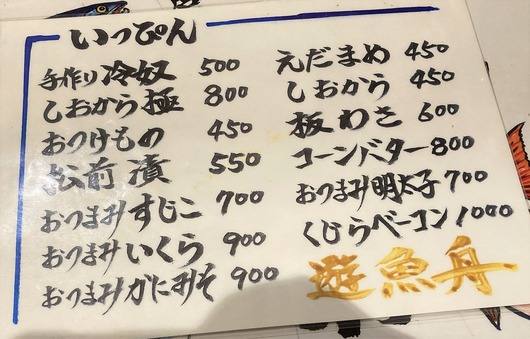 いっぴん
手作り冷奴 500
しおから極 800
おつけもの 450
松前漬 550
おつまみすじこ 700
おつまみいくら 900
おつまみがにみそ 900
えだまめ 450
しおから 450
板わさ 600
コーンバター 800
おつまみ明太子 700
くじらベーコン 1000
遊魚舟